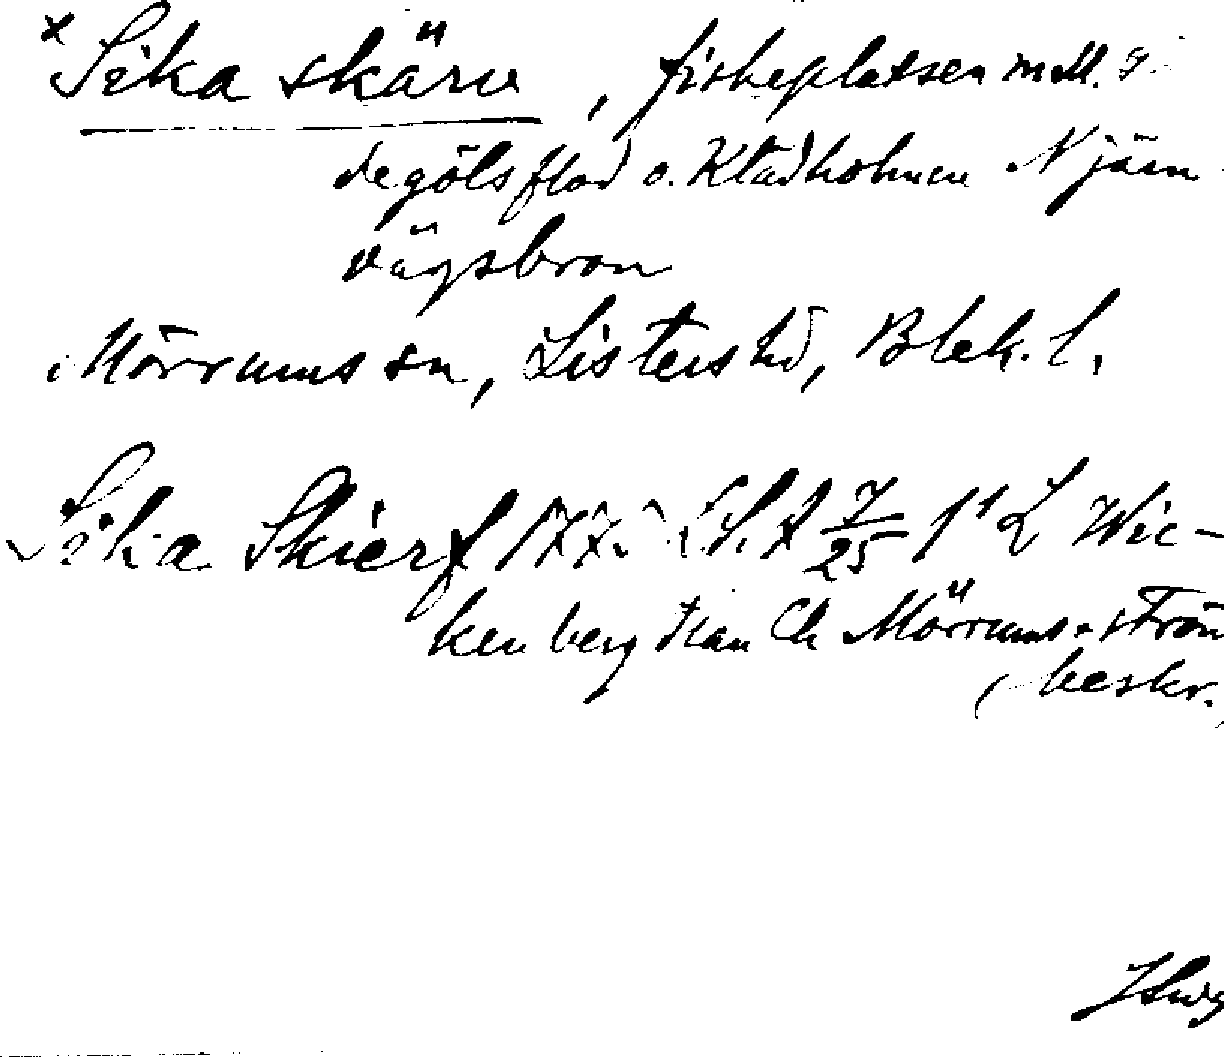 x Sika skärv, fiskeplatsen mell.
degöls flod o. Kladholmen N järn-
vägsbron
i Mörrums sn, Listers hd, Blek. l.
Sika Skierf 177 7/25 L Wic-
kenberg Mörrums ström
beskr.